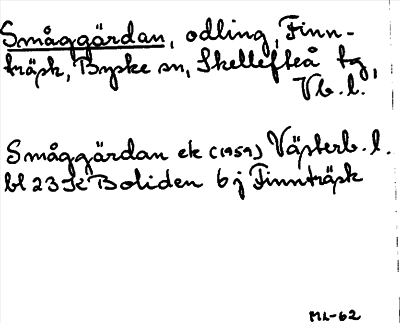 Småggärdan, odling, Finn-
träsk, Byske sn, Skellefteå tg,
Vb. l.
Småggärdan ek (1959) Västerb. l.
bl 23 K Boliden 6 j Finnträsk
ML-62